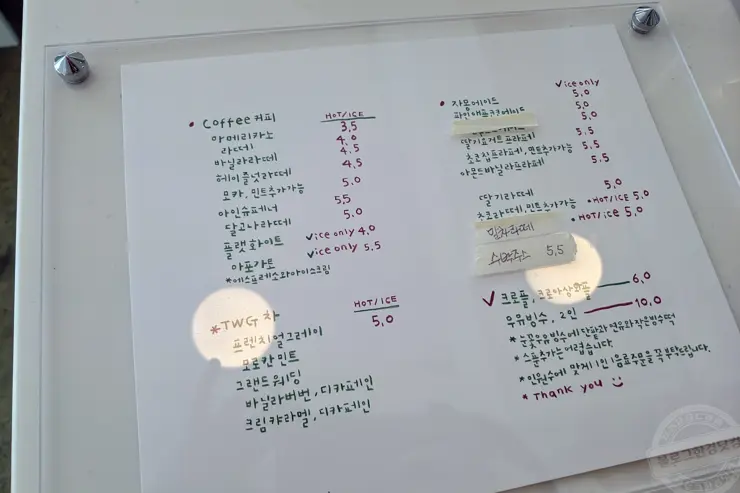 • Coffee 커피
HOT/ICE
아메리카노 3.5
라떼 4.0
바닐라라떼 4.5
헤이즐넛라떼 4.5
모카, 민트추가가능 5.0
아인슈페너 5.5
달고나라떼 5.0
플랫화이트 ✓ice only 4.0
아포가토 ✓ice only 5.5
*에스프레소와아이스크림
*TWG 차
HOT/ICE
5.0
프렌치얼그레이
모로칸민트
그랜드웨딩
바닐라버번, 디카페인
크림캬라멜, 디카페인
✓ice only
• 자몽에이드 5.0
파인애플 에이드 5.0
5.0
딸기요거트프라페 5.5
초코칩프라페, 민트추가가능 5.5
아몬드바닐라프라페 5.5
딸기라떼 5.0
초코라떼, 민트추가가능 •HOT/ICE 5.0
말차라떼 •HOT/ICE 5.0
5.5
✓ 크로플, 크로아상와플 6.0
우유빙수, 2인 10.0
*눈꽃우유빙수에 단팥과 연유와작은빙수떡
*스푼추가는어렵습니다.
*인원수에 맞게 1인 1음료주문을 꼭 부탁드립니다.
*Thank you